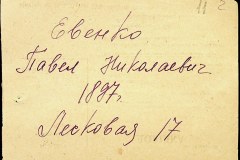 11 2
Евенко
Павел Николаевич
1897г.
Лесковая 17